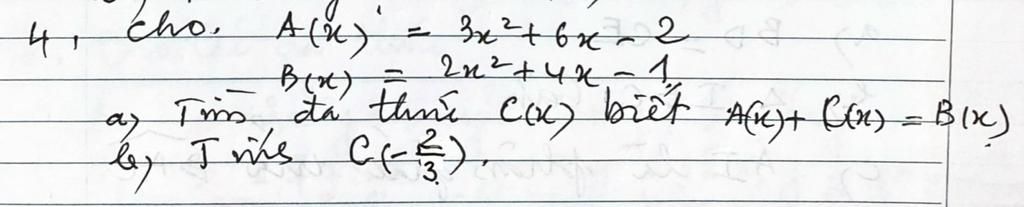 4, Cho. A(x) = 3x² + 6x - 2
B(x) = 2x² + 4x - 1
a, Tìm đa thức C(x) biết A(x) + C(x) = B(x)
b, Tính C(-2/3).